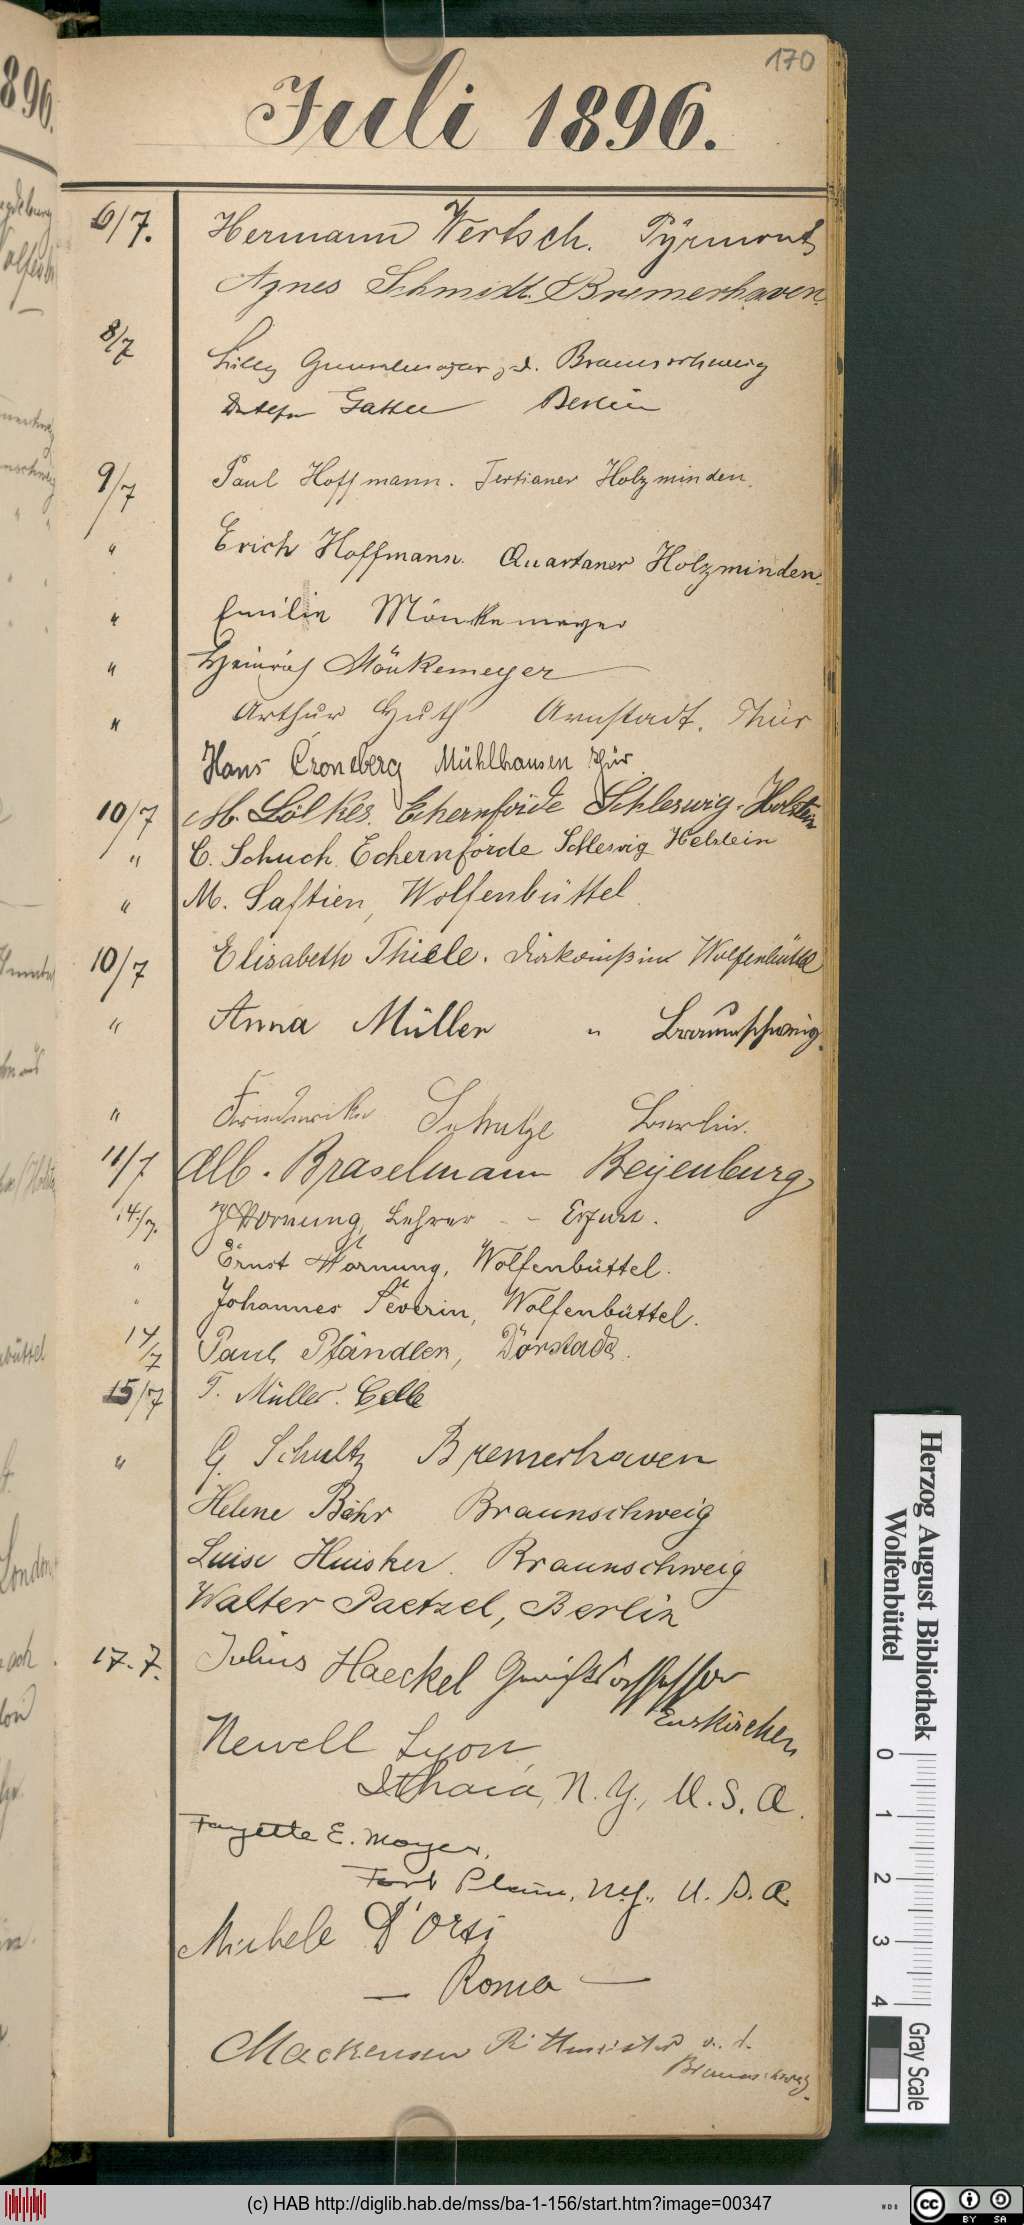 170
Juli 1896.
6/7. Hermann Wertsch. Pyrmont
Agnes Schmidt. Bremerhaven.
8/7 Braunschweig
Berlin
9/7 Paul Hoffmann. Tertianer Holzminden.
" Erich Hoffmann. Quartaner Holzminden.
" Emilie Mönkemeyer
" Heinrich Mönkemeyer
" Arthur Huth Arnstadt. Thür
Hans Croneberg Mühlhausen Thür.
10/7 M. Lölkes. Eckernförde Schleswig-Holstein
" C. Schuch. Eckernförde Schleswig Holstein
" M. Saftien, Wolfenbüttel.
10/7 Elisabeth Thiele. Diakonißin Wolfenbüttel
" Anna Müller " Braunschweig.
" Friederike Schulze Berlin.
11/7 Alb. Braselmann Beyenburg
14/7. Hornung, Lehrer - - Erfurt.
" Ernst Hornung, Wolfenbüttel.
" Johannes Severin, Wolfenbüttel.
14/7 Paul Pfändler, Dorstadt.
15/7 F. Müller. Celle
" G. Schultz Bremerhaven
Helene Bähr Braunschweig
Luise Huisken. Braunschweig
Walter Paetzel, Berlin
17.7. Julius Haeckel Gerichtsassessor
Euskirchen
Newell Lyon
Ithaca, N.Y., U.S.A.
Fayette E. Moyer,
Fort Plain, N.Y., U.S.A.
Michele D'Orsi
— Roma —
Mackensen Rittmeister a. d.
Braunschweig.
Herzog August Bibliothek
Wolfenbüttel
0 1 2 3 4 Gray Scale
(c) HAB http://diglib.hab.de/mss/ba-1-156/start.htm?image=00347
WDB
CC BY SA